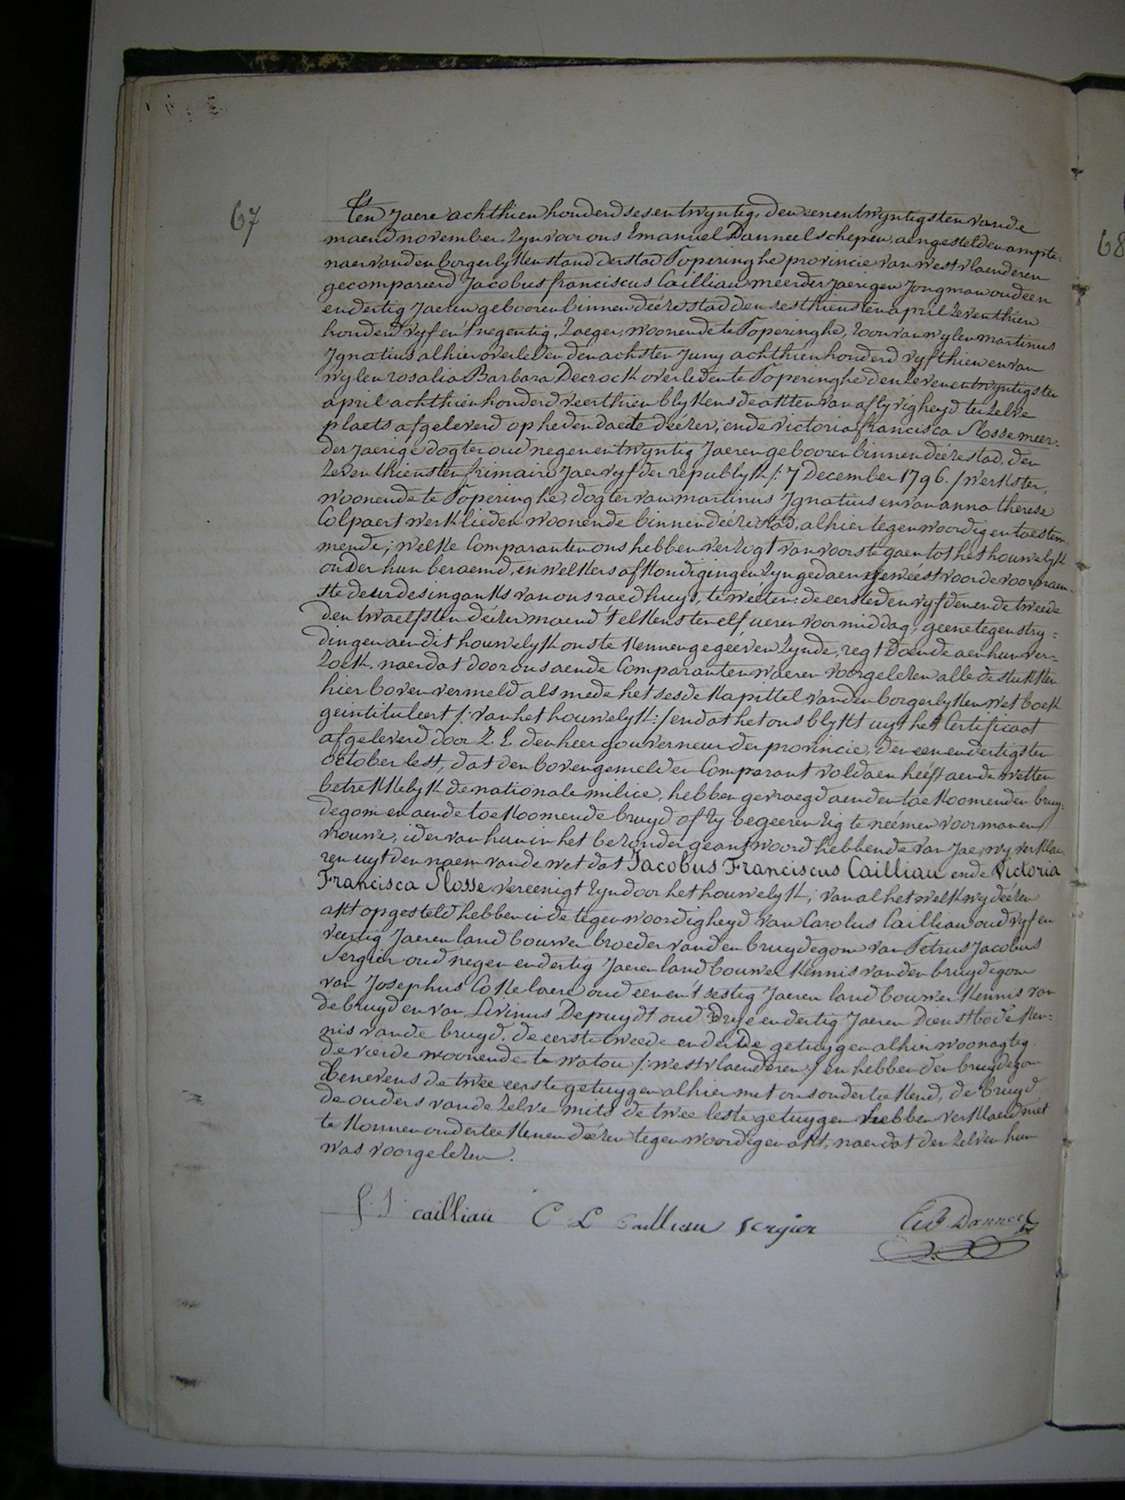 67
Ten Jaere achthien honderd sesentwyntig, den eenentwyntigsten van de
maend november, zyn voor ons Emanuel Danneel schepen, aengestelden ampte-
naer van den borgerlyken stand der stad Poperinghe provincie van west vlaenderen
gecompareerd Jacobus franciscus Cailliau meerderjaerigen Jongman oud een
endertig Jaeren gebooren binnen deéze stad den sesthiensten april zeventhien
honderd vyf en 't negentig, zaeger, woonende te Poperinghe, zoon van wylen martinus
Ignatius alhier overleden den achsten Juny achthien honderd vyfthien en van
wylen rosalia Barbara Decrock overleden te Poperinghe den zevenentwyntigsten
april achthien honderd veerthien blykens de akten van aflyvigheyd ter zelve
plaets afgeleverd op heden daete deézer, ende victoria francisca Slosse meer-
derjaerige dogter oud negenentwyntig Jaeren gebooren binnen deéze stad, den
zeventhiensten frimaire Jaer vyf der republyk /: 7 December 1796. / werkster,
woonende te Poperinghe, dogter van martinus Ignatius en van anna therese
Colpaert werklieden woonende binnen deéze stad, alhier tegenwoordig en toestem-
mende; welke Comparanten ons hebben verzogt van voorste gaen tot het houwelyk
onder hun beraemd, en welkers afkondigingen zyn gedaen geweést voor de voornaem-
ste deur des ingank's van ons raedhuys, te weéten: de eerste den vyfden ende tweede
den twaelfsten deézer maend 't elkens ten elf ueren voormiddag; geene tegenstry-
dingen aen dit houwelyk ons te kennen gegeeven zynde, regt doende aen hun ver-
zoek, naer dat door ons aen de Comparanten waeren voorgelezen alle de stukken
hier boven vermeld als mede het sesde kapittel van den borgerlyken wet boek
geintituleert /: van het houwelyk :/ en dat het ons blykt uyt het Certificaet
afgeleverd door Z. E. den heer gouverneur der provincie, den eenendertigsten
october lest, dat den bovengemelden Comparant voldaen heéft aen de wetten
betrekkelyk de nationale milice, hebben gevraegd aen den toekoomenden bruy-
degom en aen de toekoomende bruyd of zy begeeren zig te neémen voor man en
vrouwe, ider van hun in het bezonder geantwoord hebbende van Jae, wy verklae-
ren uyt den naem van de wet dat Jacobus Franciscus Cailliau ende Victoria
Francisca Slosse vereenigt zyn door het houwelyk; van al het welk wy deézen
akt opgesteld hebben in de tegenwoordigheyd van Carolus Cailliau oud vyf en
veertig Jaeren landbouwer broeder van den bruydegom van Petrus Jacobus
Sergier oud negenendertig Jaeren landbouwer kennis van den bruydegom
van Josephus Cokelaere oud eenen't sestig Jaeren landbouwer kennis van
de bruyd en van Livinus Depuydt oud Dryendertig Jaeren Dienstbode ken-
nis van de bruyd. de eerste tweede en derde getuygen alhier woonagtig
de vierde woonende te watou /: westvlaenderen :/ en hebben den bruydegom
benevens de twee eerste getuygen alhier met ons onderteekend, de bruyd
de ouders van de zelve mits de twee leste getuygen hebben verklaerd niet
te konnen onderteekenen deézen tegenwoordigen akt, naer dat den zelven hun
was voorgelezen.
cailliau C L Cailliau sergier Em Danneel
68